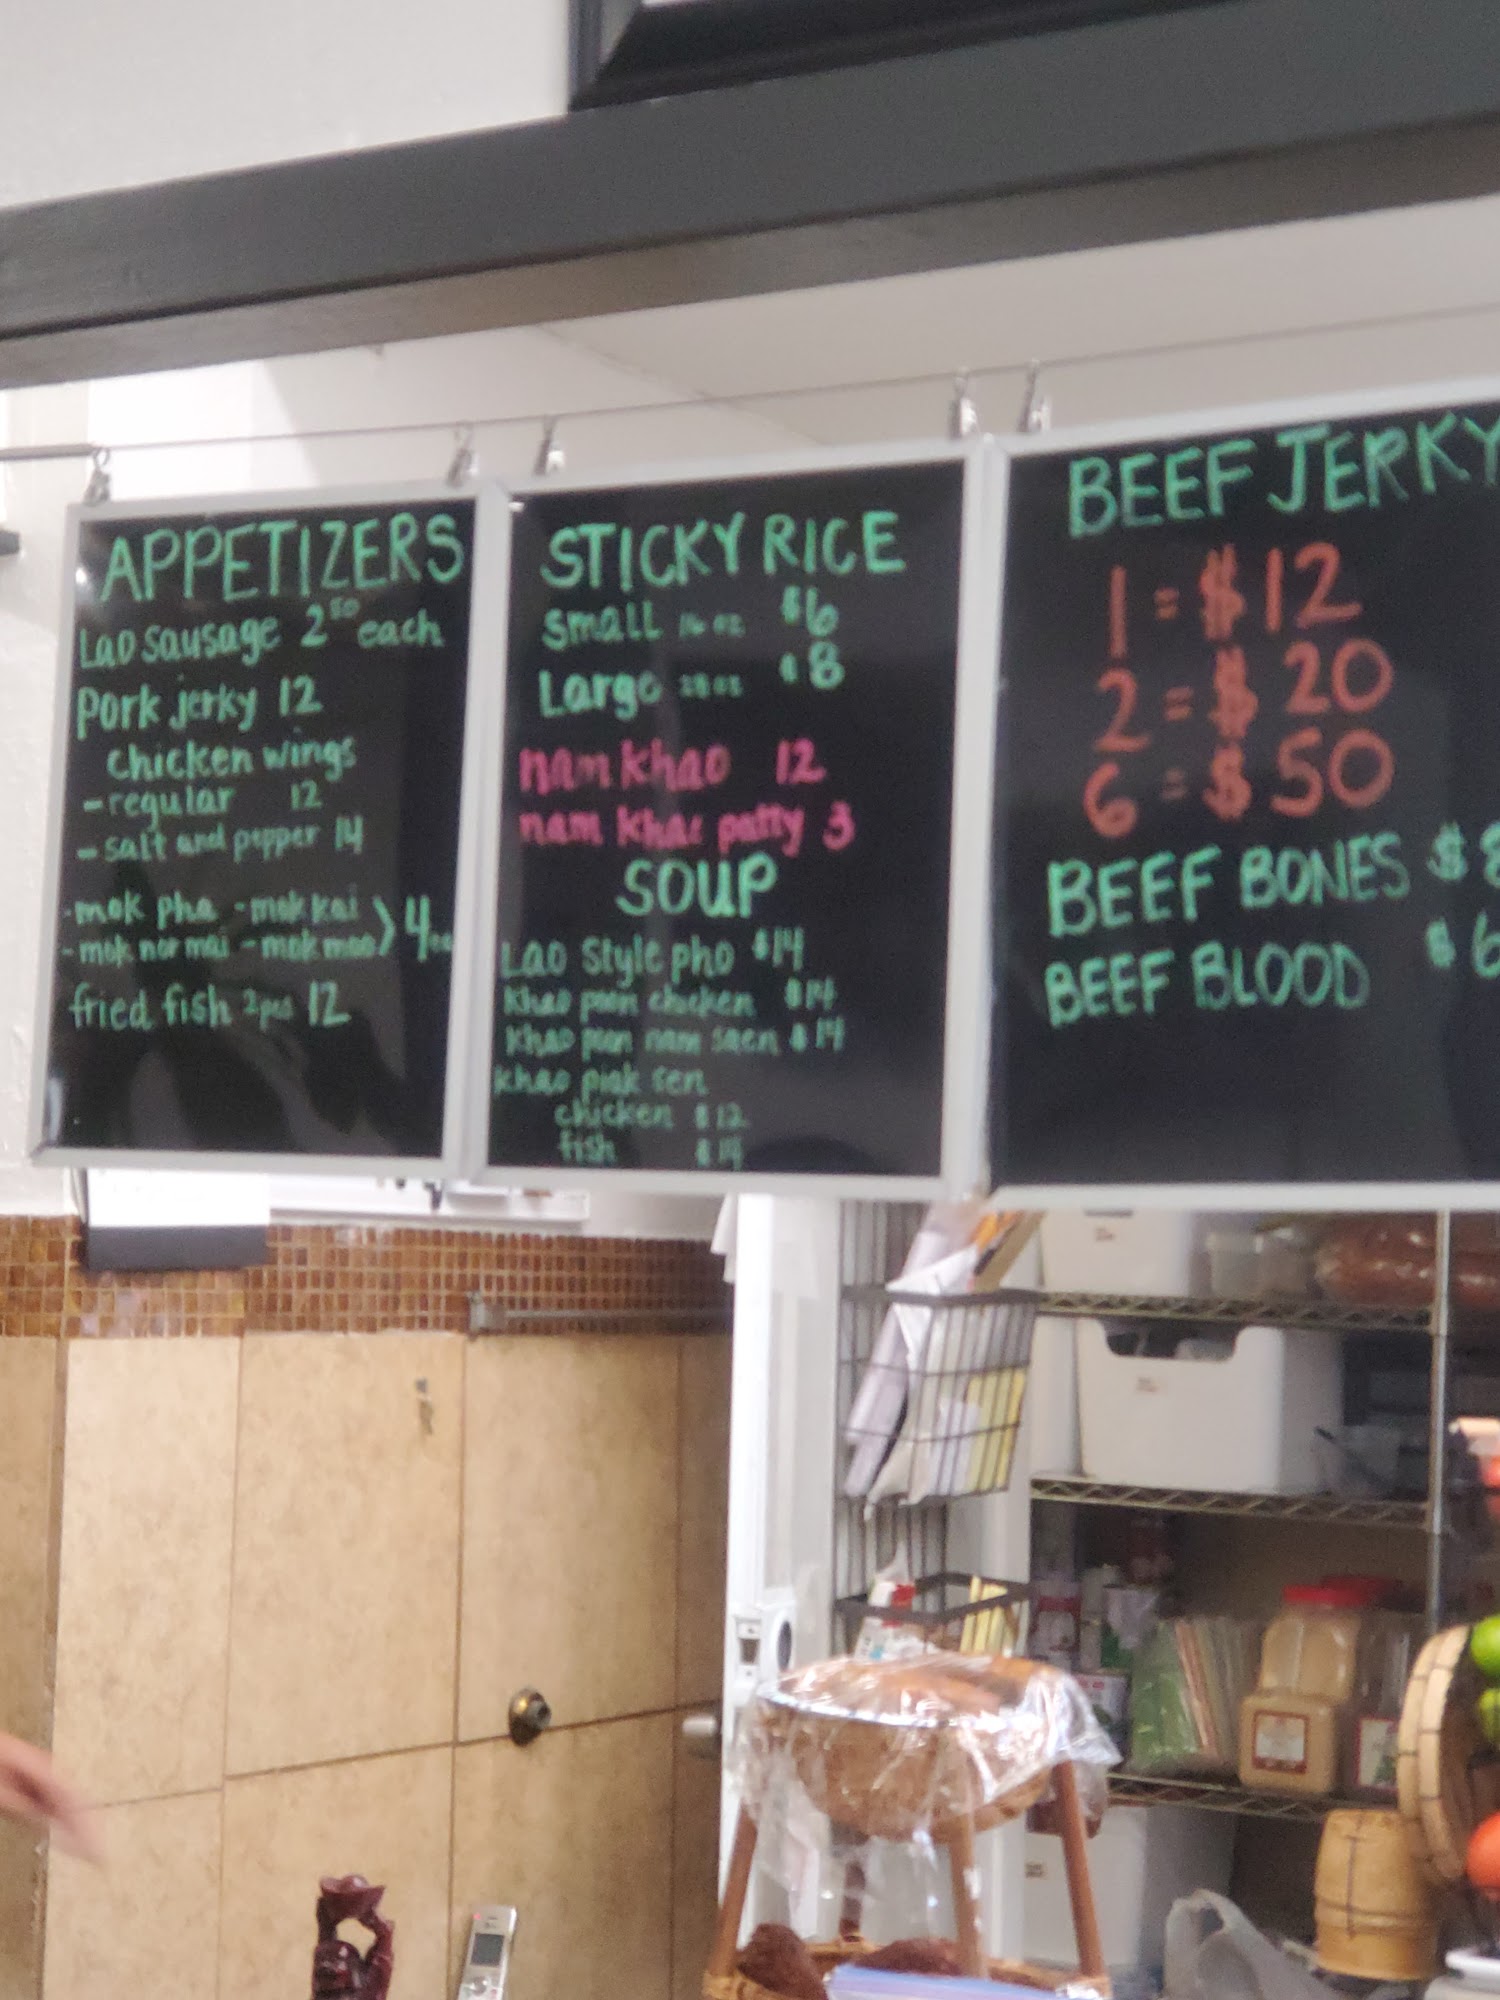 APPETIZERS
Lao sausage 2⁵⁰ each
pork jerky 12
chicken wings
- regular 12
- salt and pepper 14
- mok pha - mok kai
- mok nor mai - mok moo > 4 ea
fried fish 2pcs 12
STICKY RICE
small 16 oz $6
Large $8
nam khao 12
nam khao patty 3
SOUP
Lao Style pho $14
Khao poon chicken $14
Khao poon nam saen $14
khao piak sen
chicken $12
fish $14
BEEF JERKY
1 = $12
2 = $20
6 = $50
BEEF BONES $8
BEEF BLOOD $6